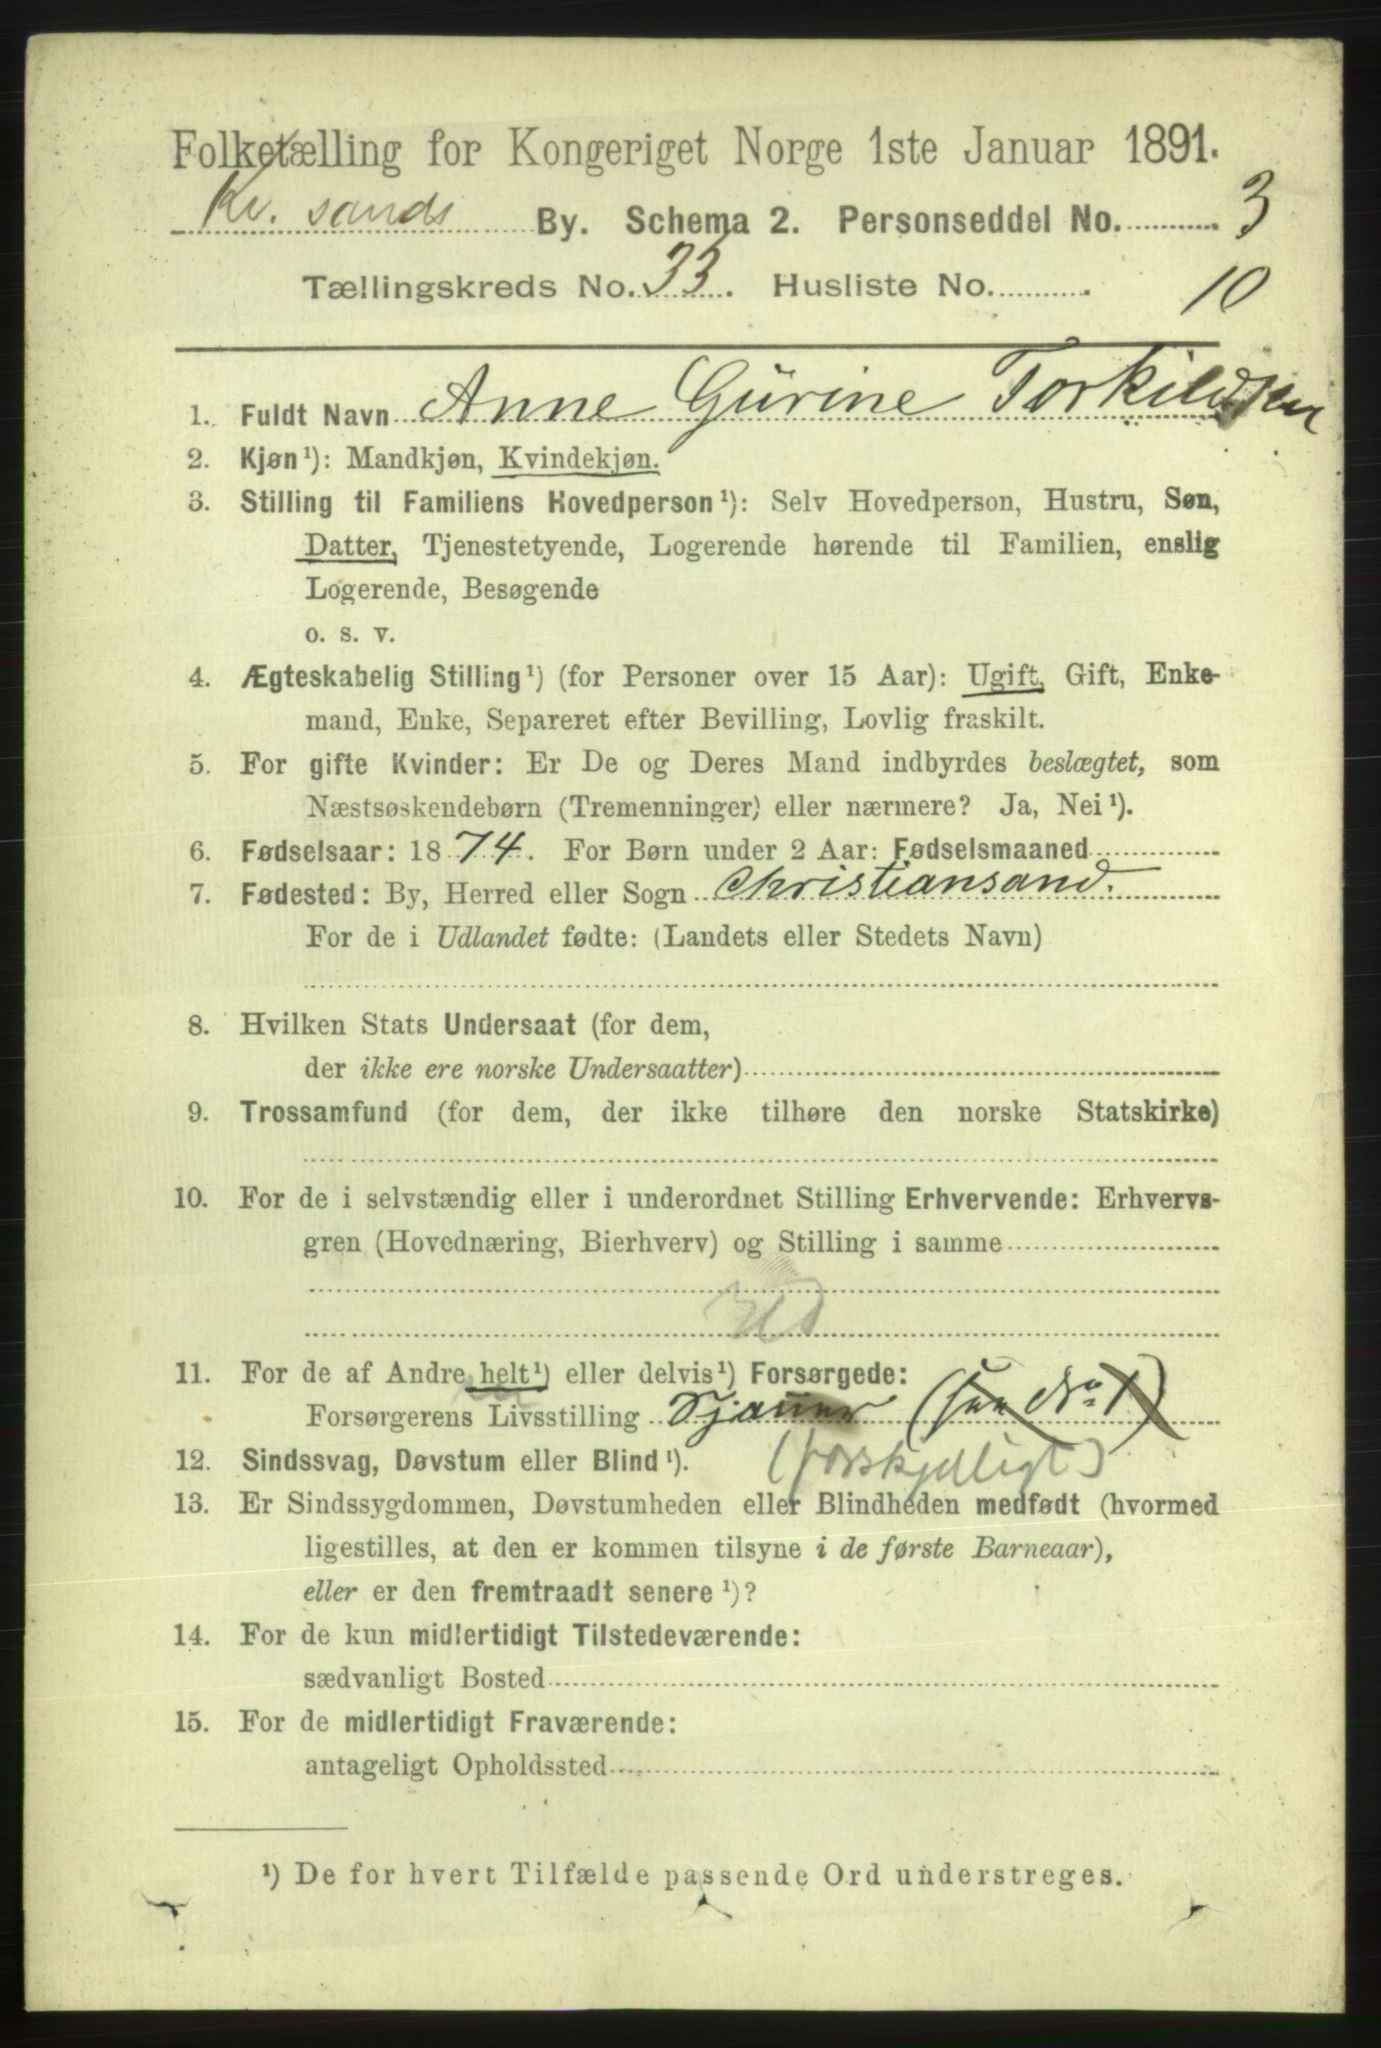 Folketælling for Kongeriget Norge 1ste Januar 1891.
Kr. sands By. Schema 2. Personseddel No. 3
Tællingskreds No. 33. Husliste No. 10
1. Fuldt Navn Anne Gurine Torkildsen
2. Kjøn¹): Mandkjøn, Kvindekjøn.
3. Stilling til Familiens Hovedperson¹): Selv Hovedperson, Hustru, Søn,
Datter, Tjenestetyende, Logerende hørende til Familien, enslig
Logerende, Besøgende
o. s. v.
4. Ægteskabelig Stilling¹) (for Personer over 15 Aar): Ugift, Gift, Enke-
mand, Enke, Separeret efter Bevilling, Lovlig fraskilt.
5. For gifte Kvinder: Er De og Deres Mand indbyrdes beslægtet, som
Næstsøskendebørn (Tremenninger) eller nærmere? Ja, Nei¹).
6. Fødselsaar: 1874. For Børn under 2 Aar: Fødselsmaaned
7. Fødested: By, Herred eller Sogn Christiansand.
For de i Udlandet fødte: (Landets eller Stedets Navn)
8. Hvilken Stats Undersaat (for dem,
der ikke ere norske Undersaatter)
9. Trossamfund (for dem, der ikke tilhøre den norske Statskirke)
10. For de i selvstændig eller i underordnet Stilling Erhvervende: Erhvervs-
gren (Hovednæring, Bierhverv) og Stilling i samme
11. For de af Andre helt¹) eller delvis¹) Forsørgede:
Forsørgerens Livsstilling Sjauer (see No 1)
12. Sindssvag, Døvstum eller Blind¹). (forskjelligt)
13. Er Sindssygdommen, Døvstumheden eller Blindheden medfødt (hvormed
ligestilles, at den er kommen tilsyne i de første Barneaar),
eller er den fremtraadt senere¹)?
14. For de kun midlertidigt Tilstedeværende:
sædvanligt Bosted
15. For de midlertidigt Fraværende:
antageligt Opholdssted
¹) De for hvert Tilfælde passende Ord understreges.